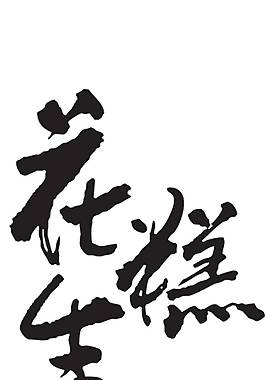 花生
糕